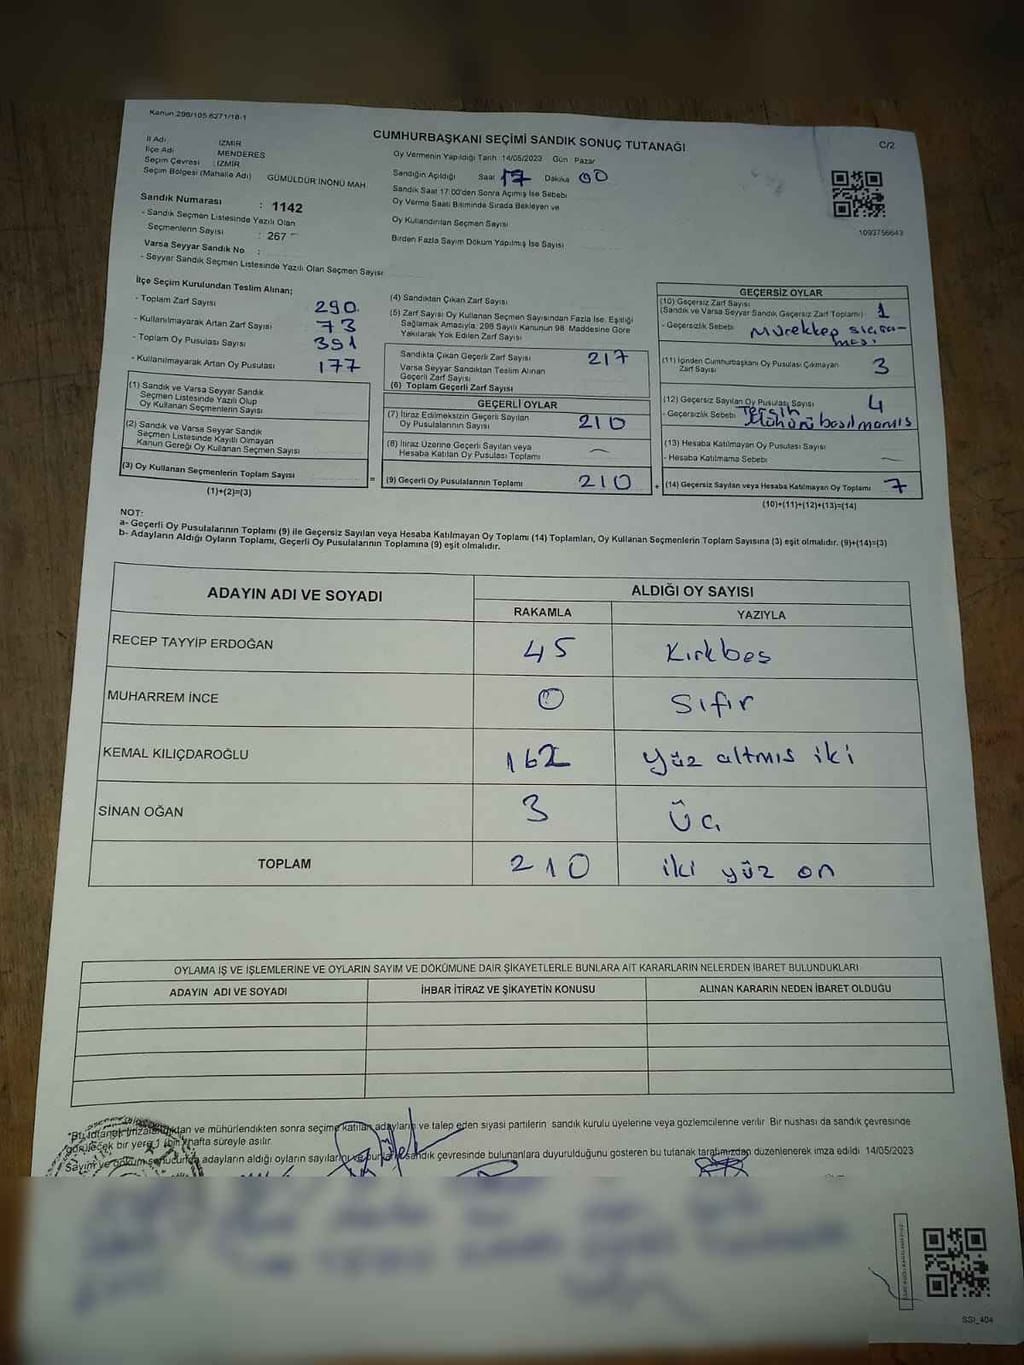 Kanun 298/105.6271/18-1
CUMHURBAŞKANI SEÇİMİ SANDIK SONUÇ TUTANAĞI
C/2
İl Adı : İZMİR
İlçe Adı : MENDERES
Seçim Çevresi : İZMİR
Seçim Bölgesi (Mahalle Adı) GÜMÜLDÜR İNÖNÜ MAH
Oy Vermenin Yapıldığı Tarih :14/05/2023 Gün Pazar
Sandığın Açıldığı Saat 17 Dakika 00
Sandık Saat 17:00'den Sonra Açılmış İse Sebebi
Oy Verme Saati Bitiminde Sırada Bekleyen ve
Oy Kullandırılan Seçmen Sayısı
Birden Fazla Sayım Döküm Yapılmış İse Sayısı
1093756643
Sandık Numarası : 1142
- Sandık Seçmen Listesinde Yazılı Olan
Seçmenlerin Sayısı : 267
Varsa Seyyar Sandık No :
- Seyyar Sandık Seçmen Listesinde Yazılı Olan Seçmen Sayısı
İlçe Seçim Kurulundan Teslim Alınan;
- Toplam Zarf Sayısı 290
- Kullanılmayarak Artan Zarf Sayısı 73
- Toplam Oy Pusulası Sayısı 391
- Kullanılmayarak Artan Oy Pusulası 177
(1) Sandık ve Varsa Seyyar Sandık
Seçmen Listesinde Yazılı Olup
Oy Kullanan Seçmenlerin Sayısı
(2) Sandık ve Varsa Seyyar Sandık
Seçmen Listesinde Kayıtlı Olmayan
Kanun Gereği Oy Kullanan Seçmen Sayısı
(3) Oy Kullanan Seçmenlerin Toplam Sayısı =
(1)+(2)=(3)
(4) Sandıktan Çıkan Zarf Sayısı
(5) Zarf Sayısı Oy Kullanan Seçmen Sayısından Fazla İse, Eşitliği
Sağlamak Amacıyla, 298 Sayılı Kanunun 98. Maddesine Göre
Yakılarak Yok Edilen Zarf Sayısı
Sandıkta Çıkan Geçerli Zarf Sayısı 217
Varsa Seyyar Sandıktan Teslim Alınan
Geçerli Zarf Sayısı
(6) Toplam Geçerli Zarf Sayısı
GEÇERLİ OYLAR
(7) İtiraz Edilmeksizin Geçerli Sayılan
Oy Pusulalarının Sayısı 210
(8) İtiraz Üzerine Geçerli Sayılan veya
Hesaba Katılan Oy Pusulası Toplamı –
(9) Geçerli Oy Pusulalarının Toplamı 210 +
GEÇERSİZ OYLAR
(10) Geçersiz Zarf Sayısı
(Sandık ve Varsa Seyyar Sandık Geçersiz Zarf Toplamı) : 1
- Geçersizlik Sebebi Mürekkep sıçra-
ması
(11) İçinden Cumhurbaşkanı Oy Pusulası Çıkmayan
Zarf Sayısı 3
(12) Geçersiz Sayılan Oy Pusulası Sayısı 4
- Geçersizlik Sebebi Tercih
Mühürü basılmamış
(13) Hesaba Katılmayan Oy Pusulası Sayısı
- Hesaba Katılmama Sebebi –
(14) Geçersiz Sayılan veya Hesaba Katılmayan Oy Toplamı 7
(10)+(11)+(12)+(13)=(14)
NOT:
a- Geçerli Oy Pusulalarının Toplamı (9) ile Geçersiz Sayılan veya Hesaba Katılmayan Oy Toplamı (14) Toplamları, Oy Kullanan Seçmenlerin Toplam Sayısına (3) eşit olmalıdır. (9)+(14)=(3)
b- Adayların Aldığı Oyların Toplamı, Geçerli Oy Pusulalarının Toplamına (9) eşit olmalıdır.
ADAYIN ADI VE SOYADI ALDIĞI OY SAYISI
RAKAMLA YAZIYLA
RECEP TAYYİP ERDOĞAN 45 Kırkbeş
MUHARREM İNCE 0 Sıfır
KEMAL KILIÇDAROĞLU 162 yüz altmış iki
SİNAN OĞAN 3 Üç
TOPLAM 210 iki yüz on
OYLAMA İŞ VE İŞLEMLERİNE VE OYLARIN SAYIM VE DÖKÜMÜNE DAİR ŞİKAYETLERLE BUNLARA AİT KARARLARIN NELERDEN İBARET BULUNDUKLARI
ADAYIN ADI VE SOYADI İHBAR İTİRAZ VE ŞİKAYETİN KONUSU ALINAN KARARIN NEDEN İBARET OLDUĞU
*Bu tutanak imzalandıktan ve mühürlendikten sonra seçime katılan adayların ve talep eden siyasi partilerin sandık kurulu üyelerine veya gözlemcilerine verilir. Bir nüshası da sandık çevresinde
görülecek bir yere 1 (bir) hafta süreyle asılır.
Sayım ve döküm sonucunda adayların aldığı oyların sayılarını ve bunların sandık çevresinde bulunanlara duyurulduğunu gösteren bu tutanak tarafımızdan düzenlenerek imza edildi 14/05/2023
SSI_404